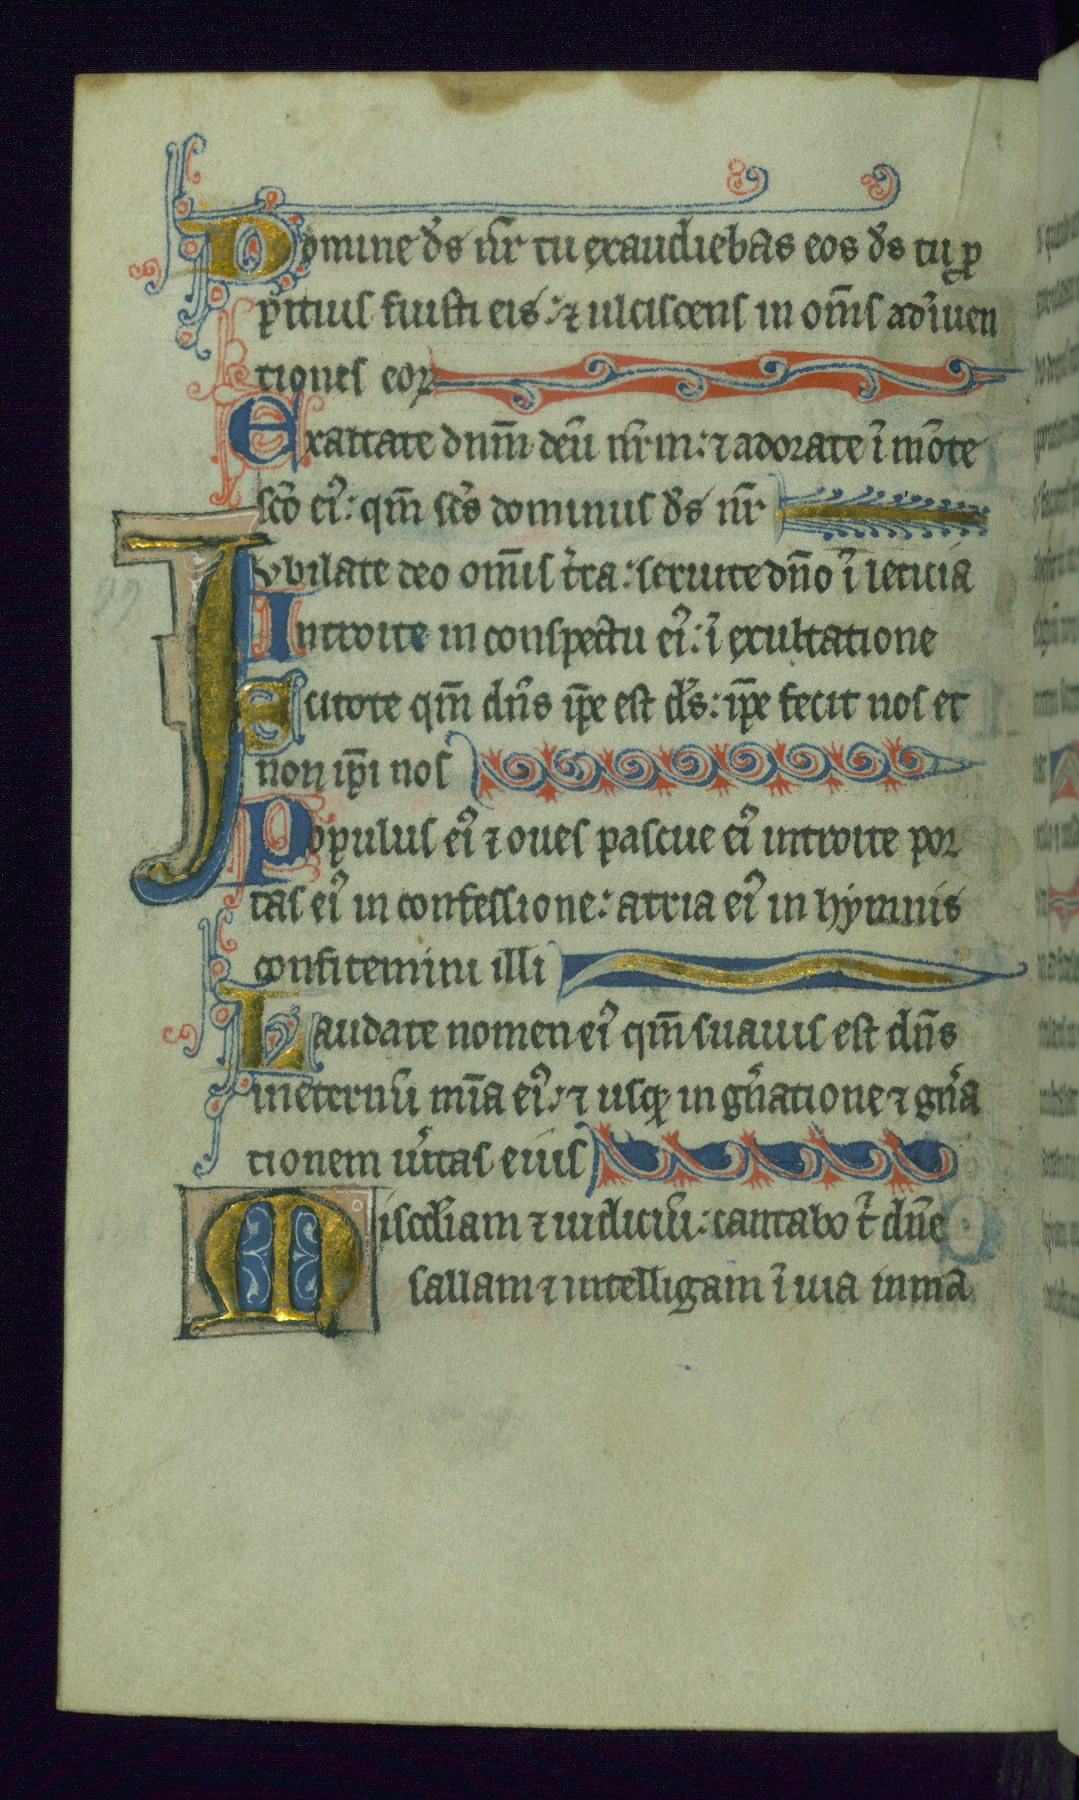 Domine ds̄ nr̄ tu exaudiebas eos ds̄ tu ꝓ
pitius fuisti eis: ⁊ ulciscens in om̄s ad īuen
tiones eoꝝ
Exaltate dnm̄ deū nr̄m: ⁊ adorate ī mōte
sc̄o ei᷒: qm̄ sc̄s dominus ds̄ nr̄
Jvbilate deo omīs t̄ra: seruite dn̄o ī leticia
Introite in conspectu ei᷒: ī exultatione
Scitote qm̄ dn̄s ip̄e est ds̄: ip̄e fecit nos et
non ip̄i nos
Populus ei᷒ ⁊ oues pascue ei᷒ introite por
tas ei᷒ in confessione: atria ei᷒ in hymnis
confitemini illi
Laudate nomen ei᷒ qm̄ suauis est dn̄s
in eternū mīa ei᷒: ⁊ usqꝫ in gn̄atione ⁊ gn̄a
tionem ūitas eius
Miscd̄iam ⁊ iudiciū: cantabo t̄ dn̄e
sallam ⁊ intelligam ī uia inmā
99